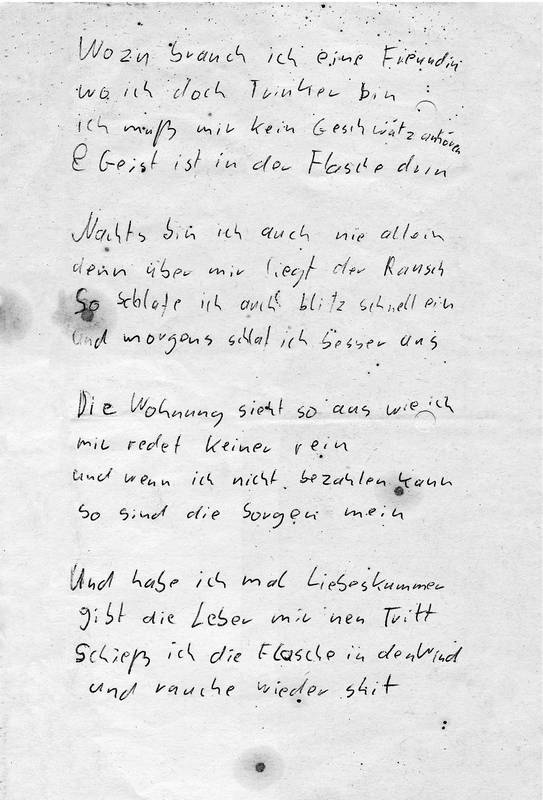 Wozu brauch ich eine Freundin
wo ich doch Trinker bin
ich muß mir kein Geschwätz anhören
Geist ist in der Flasche drin
Nachts bin ich auch nie allein
denn über mir liegt der Rausch
So schlafe ich auch blitz schnell ein
und morgens schlaf ich besser aus
Die Wohnung sieht so aus wie ich
mir redet keiner rein
und wenn ich nicht bezahlen kann
so sind die Sorgen mein
Und habe ich mal Liebeskummer
gibt die Leber mir 'nen Tritt
Schieß ich die Flasche in den Wind
und rauche wieder shit